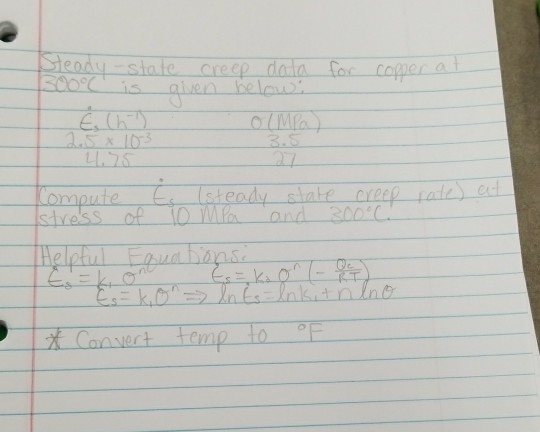 Steady-state creep data for copper at
300°C is given below:
Ė_s (h⁻¹) σ (MPa)
2.5 x 10⁻³ 3.5
4.75 27
Compute Ė_s (steady state creep rate) at
stress of 10 MPa and 300°C.
Helpful Equations:
Ė_s = k₁ σⁿ Ė_s = k₂ σⁿ (- Qc/RT)
Ė_s = k₁σⁿ => ln Ė_s = ln k₁ + n ln σ
* Convert temp to °F